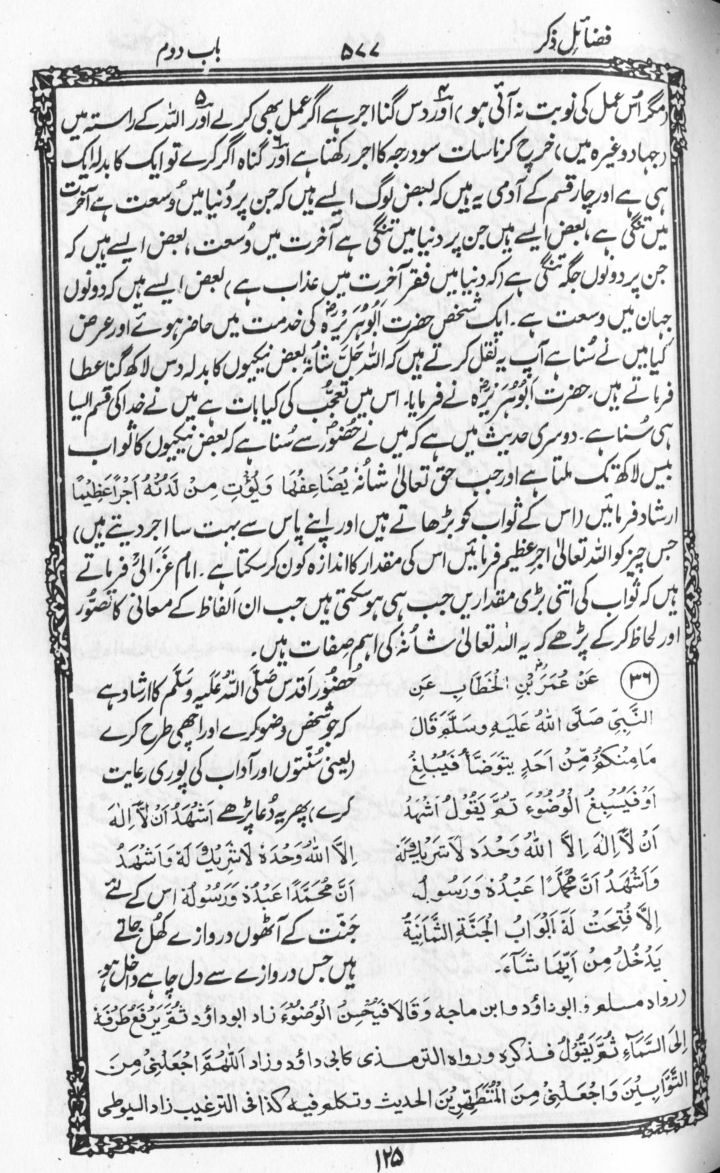 فضائلِ ذکر
۵۷۷
باب دوم
(مگر اس عمل کی نوبت نہ آئی ہو) ۴ اور دس گنا اجر ہے اگر عمل بھی کرلے ۵ اور اللہ کے راستہ میں
(جہاد وغیرہ میں) خرچ کرنا سات سو درجہ کا اجر رکھتا ہے ۶ اور گناہ اگر کرے تو ایک کا بدلہ ایک
ہی ہے اور چار قسم کے آدمی یہ ہیں کہ بعض لوگ ایسے ہیں کہ جن پر دُنیا میں وُسعت ہے آخرت
میں تنگی ہے، بعض ایسے ہیں جن پر دنیا میں تنگی ہے آخرت میں وُسعت، بعض ایسے ہیں کہ
جن پر دونوں جگہ تنگی ہے (کہ دنیا میں فقر آخرت میں عذاب ہے) بعض ایسے ہیں کہ دونوں
جہان میں وسعت ہے۔ ایک شخص حضرت اَبُو ہُرَیْرَہؓ کی خدمت میں حاضر ہوئے اور عرض
کیا میں نے سُنا ہے آپ یہ نقل کرتے ہیں کہ اللہ جَلَّ شَانُہٗ بعض نیکیوں کا بدلہ دس لاکھ گنا عطا
فرماتے ہیں۔ حضرت اَبُو ہُرَیْرَہؓ نے فرمایا۔ اس میں تعجُّب کی کیا بات ہے میں نے خدا کی قسم ایسا
ہی سُنا ہے۔ دوسری حدیث میں ہے کہ میں نے حضُورؐ سے سُنا ہے کہ بعض نیکیوں کا ثواب
بیس لاکھ تک ملتا ہے اور جب حق تعالیٰ شانُہٗ یُضَاعِفْهَا وَیُؤْتِ مِنْ لَّدُنْهُ اَجْرًا عَظِیْمًا
ارشاد فرمائیں (اس کے ثواب کو بڑھاتے ہیں اور اپنے پاس سے بہت سا اجر دیتے ہیں)
جس چیز کو اللہ تعالیٰ اجرِ عظیم فرمائیں اس کی مقدار کا اندازہ کون کرسکتا ہے۔ امام غزالیؒ فرماتے
ہیں کہ ثواب کی اتنی بڑی مقداریں جب ہی ہوسکتی ہیں جب ان الفاظ کے معانی کا تصوُّر
اور لحاظ کرکے پڑھے کہ یہ اللہ تعالیٰ شانُہٗ کی اہم صفات ہیں۔
(۳۶) عَنْ عُمَرَ بْنِ الْخَطَّابِؓ عَنِ
النَّبِیِّ صَلَّی اللهُ عَلَیْهِ وَسَلَّمَ قَالَ
مَا مِنْكُمْ مِّنْ اَحَدٍ یَتَوَضَّأُ فَیُبْلِغُ
اَوْ فَیُسْبِغُ الْوُضُوْءَ ثُمَّ یَقُوْلُ اَشْهَدُ
اَنْ لَّا اِلٰهَ اِلَّا اللهُ وَحْدَهٗ لَا شَرِیْكَ لَهٗ
وَاَشْهَدُ اَنَّ مُحَمَّدًا عَبْدُهٗ وَرَسُوْلُهٗ
اِلَّا فُتِحَتْ لَهٗ اَبْوَابُ الْجَنَّةِ الثَّمَانِیَةُ
یَدْخُلُ مِنْ اَیِّهَا شَآءَ۔
حضُورِ اَقدس صَلَّی اللہُ عَلَیْہِ وَسَلَّم کا ارشاد ہے
کہ جو شخص وضو کرے اور اچھی طرح کرے
(یعنی سُنّتوں اور آداب کی پوری رعایت
کرے) پھر یہ دُعا پڑھے اَشْهَدُ اَنْ لَّا اِلٰهَ
اِلَّا اللهُ وَحْدَهٗ لَا شَرِیْكَ لَهٗ وَاَشْهَدُ
اَنَّ مُحَمَّدًا عَبْدُهٗ وَرَسُوْلُهٗ اس کے لئے
جنّت کے آٹھوں دروازے کھُل جاتے
ہیں جس دروازے سے دل چاہے داخل ہو۔
(رواه مسلم و ابوداؤد وابن ماجه وقالا فَیُحْسِنُ الْوُضُوْءَ زاد ابوداؤد ثُمَّ یَرْفَعُ طَرْفَهٗ
اِلَی السَّمَاءِ ثُمَّ یَقُوْلُ فذكره ورواه الترمذی كابی داؤد وزاد اَللّٰهُمَّ اجْعَلْنِیْ مِنَ
التَّوَّابِیْنَ وَاجْعَلْنِیْ مِنَ الْمُتَطَهِّرِیْنَ الحدیث وتكلم فیه كذا فی الترغیب زاد السیوطی
۱۲۵